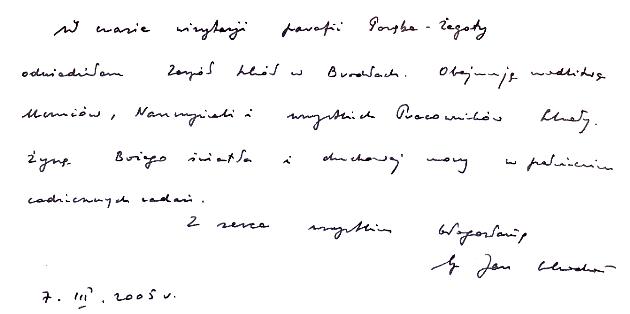 W czasie wizytacji parafii Poręba-Żegoty
odwiedziłem Zespół Szkół w Brodłach. Obejmuję modlitwą
Uczniów, Nauczycieli i wszystkich Pracowników Szkoły.
Życzę Bożego światła i duchowej mocy w pełnieniu
codziennych zadań.
Z serca wszystkim błogosławię
Jan
7. III. 2005 r.